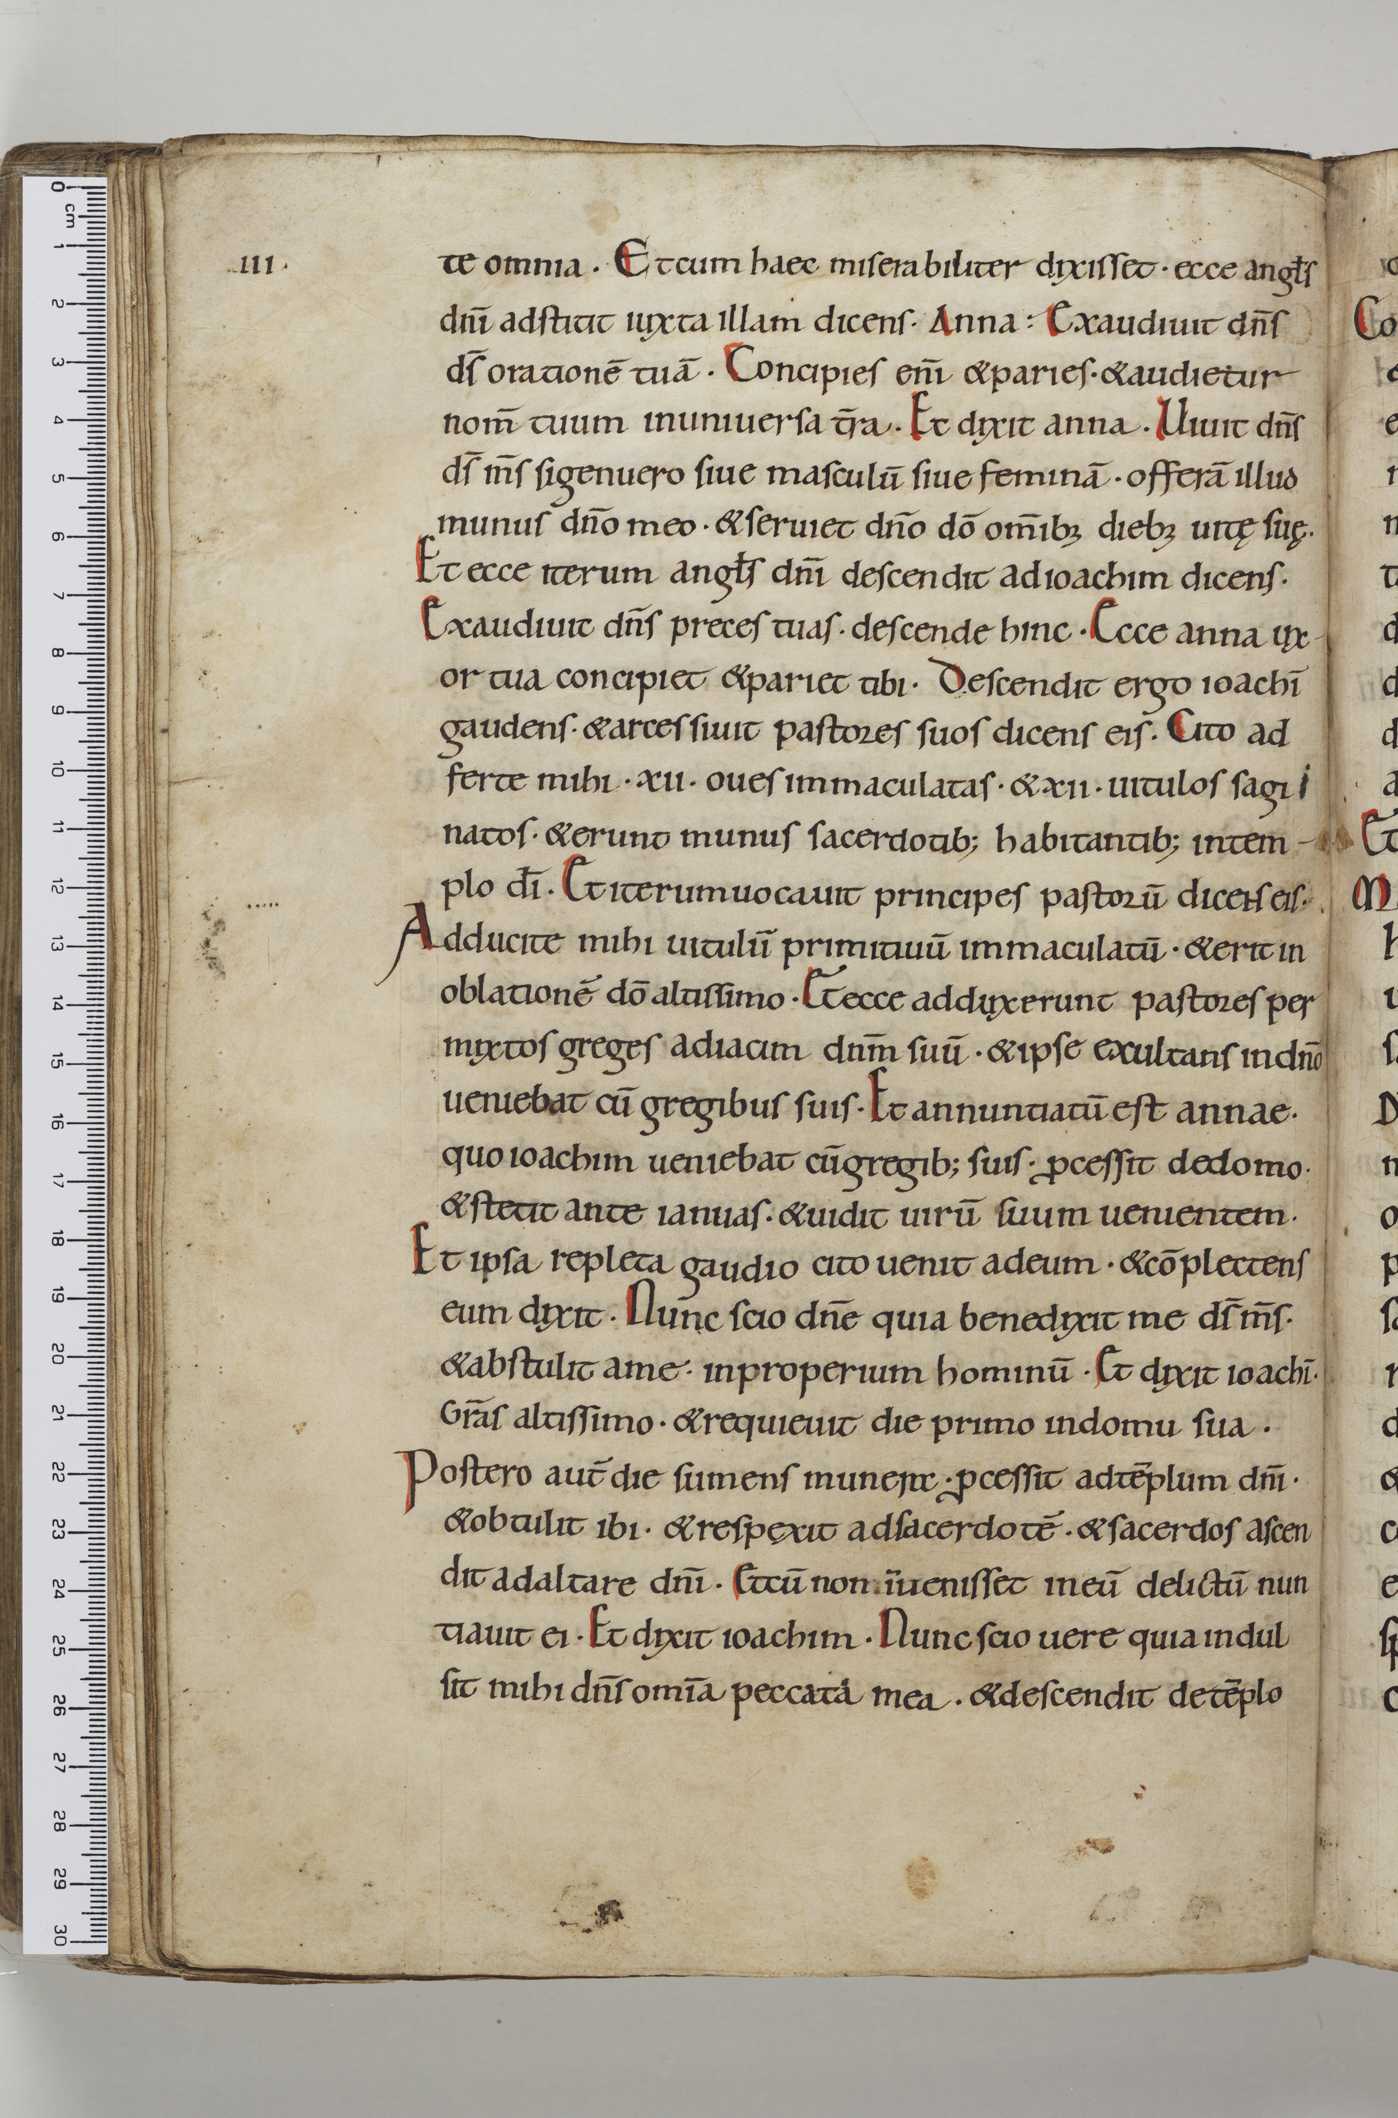 .III.
te omnia. Et cum haec miserabiliter dixisset. ecce angl̄s
dnī adstitit iuxta illam dicens. Anna: Exaudiuit dn̄s
ds̄ orationē tuā. Concipies enī & paries. & audietur
nom̄ tuum in uniuersa tr̄a. Et dixit anna. Uiuit dn̄s
ds̄ ms̄ si genuero siue masculū siue feminā. offerā illud
munus dn̄o meo. & seruiet dn̄o dō om̄ibꝫ diebꝫ uitę suę.
Et ecce iterum angl̄s dnī descendit ad ioachim dicens.
Exaudiuit dn̄s preces tuas. descende hinc. Ecce anna ux-
or tua concipiet & pariet tibi. Descendit ergo ioachī
gaudens. & arcessiuit pastores suos dicens eis. Cito ad
ferte mihi .xii. oues immaculatas. & xii. uitulos sagi
natos. & erunt munus sacerdotib; habitantib; in tem-
plo dī. Et iterum uocauit principes pastorū dicens eis.
Adducite mihi uitulū primitiuū immaculatū. & erit in
oblationē dō altissimo. Et ecce adduxerunt pastores per
mixtos greges ad iacim dnm̄ suū. & ipse exultans in dn̄o
ueniebat cū gregibus suis. Et annuntiatū est annae.
quo ioachim ueniebat cū gregib; suis. ꝓcessit de domo.
& stetit ante ianuas. & uidit uirū suum uenientem.
Et ipsa repleta gaudio cito uenit ad eum. & cōplectens
eum dixit. Nunc scio dn̄e quia benedixit me ds̄ ms̄.
& abstulit a me. inproperium hominū. Et dixit ioachī.
Gr̄as altissimo. & requieuit die primo in domu sua.
Postero aut̄ die sumens munera. ꝓcessit ad tēplum dnī.
& obtulit ibi. & respexit ad sacerdotē. & sacerdos ascen
dit ad altare dnī. Et cū non īuenisset in eū delictū nun
tiauit ei. Et dixit ioachim. Nunc scio uere quia indul
sit mihi dn̄s omīa peccata mea. & descendit de tēplo
0 cm 1 2 3 4 5 6 7 8 9 10 11 12 13 14 15 16 17 18 19 20 21 22 23 24 25 26 27 28 29 30